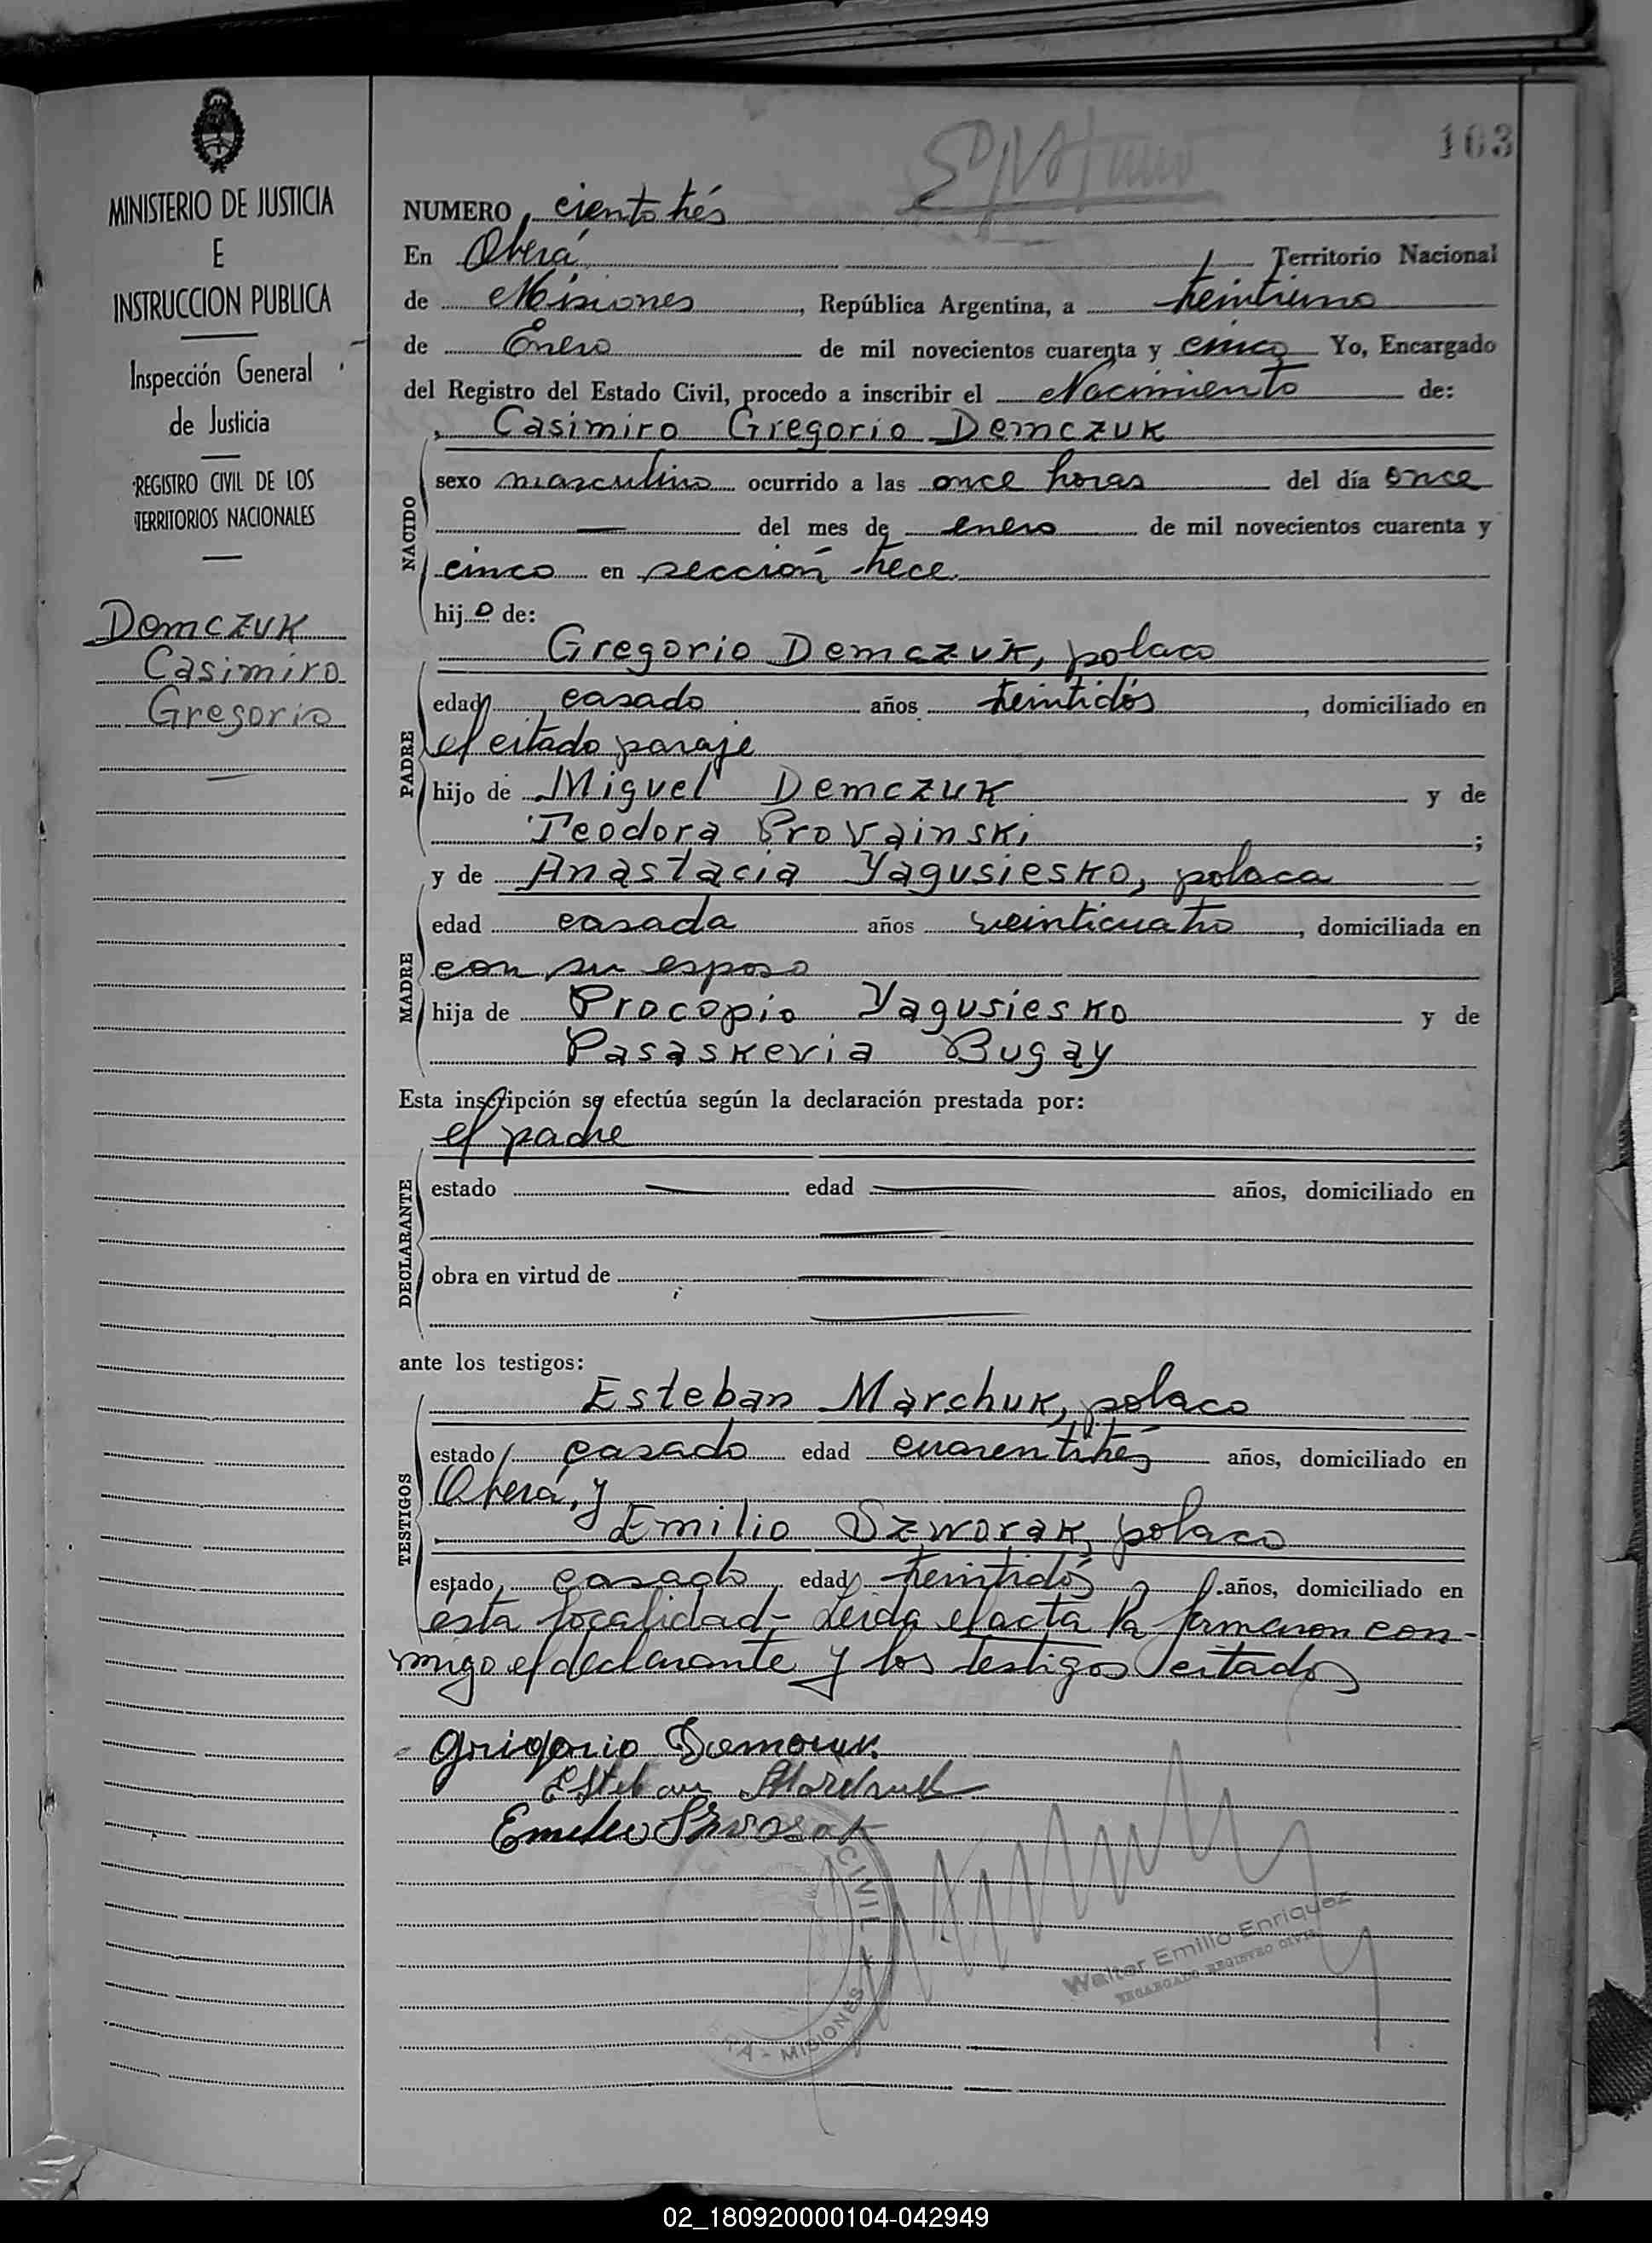 103
MINISTERIO DE JUSTICIA
E
INSTRUCCION PUBLICA
Inspección General
de Justicia
REGISTRO CIVIL DE LOS
TERRITORIOS NACIONALES
Demczuk
Casimiro
Gregorio
NUMERO ciento trés
En Oberá Territorio Nacional
de Misiones, República Argentina, a treintiuno
de Enero de mil novecientos cuarenta y cinco Yo, Encargado
del Registro del Estado Civil, procedo a inscribir el Nacimiento de:
Casimiro Gregorio Demczuk
NACIDO
sexo masculino ocurrido a las once horas del día once
— del mes de enero de mil novecientos cuarenta y
cinco en sección trece
hijo de:
Gregorio Demczuk, polaco
PADRE
edad casado años treintidós, domiciliado en
el citado paraje
hijo de Miguel Demczuk y de
Teodora Provainski;
y de Anastacia Yagusiesko, polaca
MADRE
edad casada años veinticuatro, domiciliada en
con su esposo
hija de Procopio Yagusiesko y de
Pasaskevia Bugay
Esta inscripción se efectúa según la declaración prestada por:
el padre
DECLARANTE
estado — edad — años, domiciliado en
—
obra en virtud de —
—
ante los testigos:
Esteban Marchuk, polaco
TESTIGOS
estado casado edad cuarentitrés años, domiciliado en
Oberá, y
Emilio Szworak, polaco
estado casado edad treintidós años, domiciliado en
esta localidad- Leida el acta la firmaron con-
migo el declarante y los testigos citados
Grigorio
Esteban Marchuk
Emilio Szworak
CIVIL
MISIONES
Walter Emilio Enriquez
ENCARGADO REGISTRO CIVIL
02_180920000104-042949